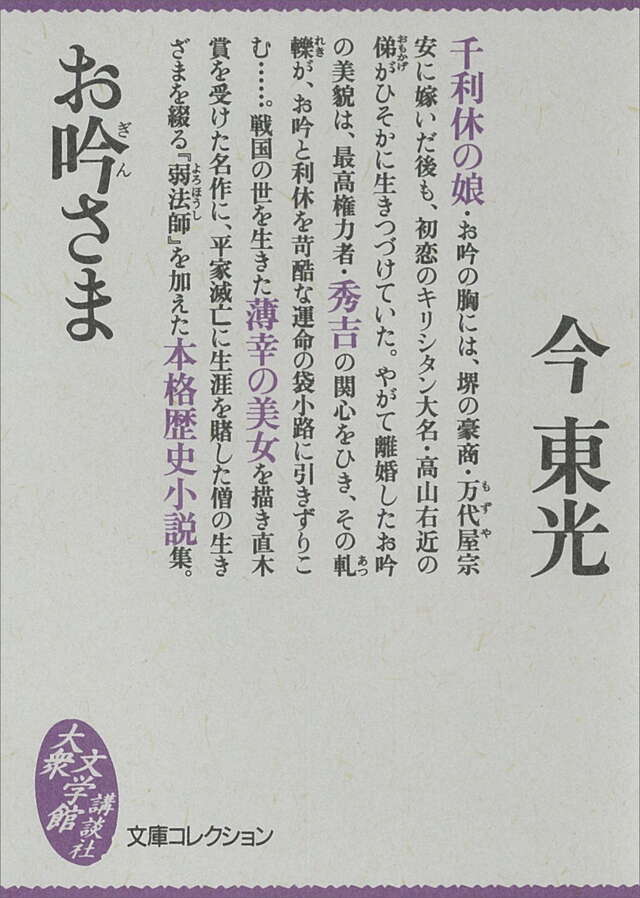 今東光
千利休の娘・お吟の胸には、堺の豪商・万代屋宗
安に嫁いだ後も、初恋のキリシタン大名・高山右近の
俤がひそかに生きつづけていた。やがて離婚したお吟
の美貌は、最高権力者・秀吉の関心をひき、その軋
轢が、お吟と利休を苛酷な運命の袋小路に引きずりこ
む……。戦国の世を生きた薄幸の美女を描き直木
賞を受けた名作に、平家滅亡に生涯を賭した僧の生き
ざまを綴る『弱法師』を加えた本格歴史小説集。
お吟さま
大衆文学館
講談社
文庫コレクション